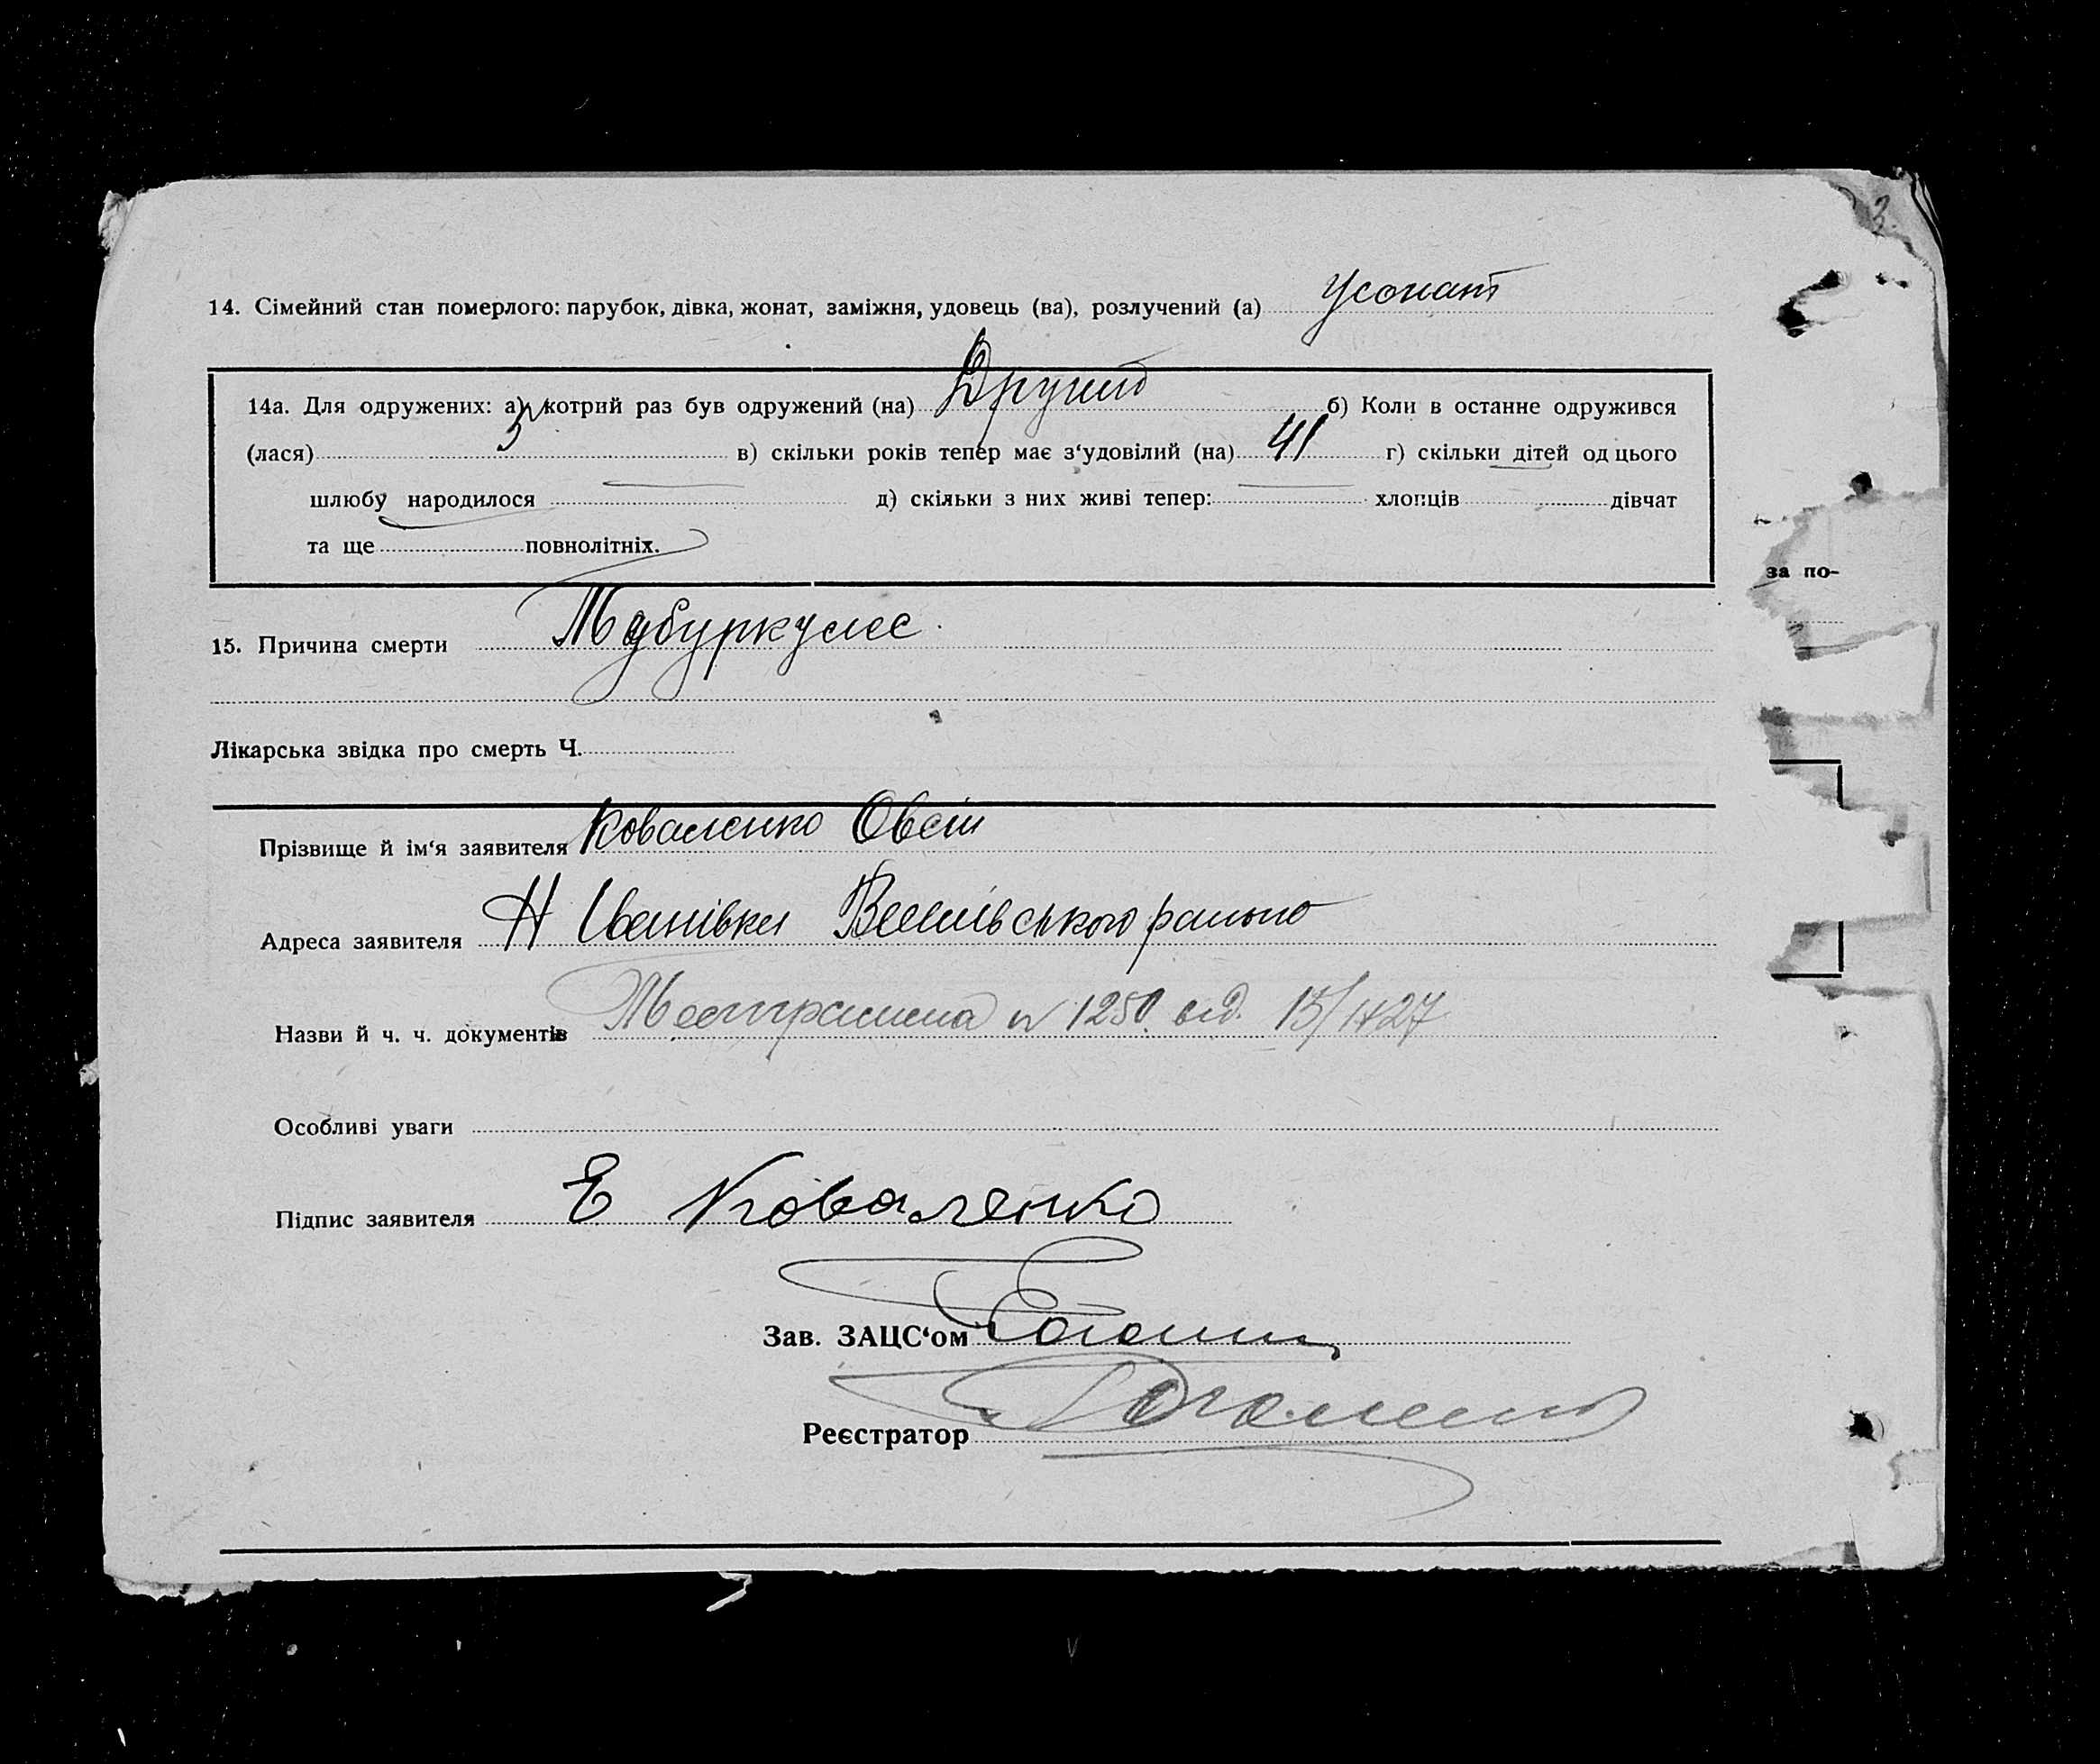 3.
14. Сімейний стан померлого: парубок, дівка, жонат, заміжня, удовець (ва), розлучений (а) жонат
14а. Для одружених: а) котрий раз був одружений (на) Другий б) Коли в останне одружився
(лася) в) скільки років тепер має з‘удовілий (на) 41 г) скільки дітей од цього
шлюбу народилося д) скільки з них живі тепер: хлопців дівчат
та ще повнолітніх.
за по-
15. Причина смерти Тубуркулес.
Лікарська звідка про смерть Ч.
Прізвище й ім‘я заявителя Коваленко Овсій
Адреса заявителя Н Іванівки району
Назви й ч. ч. документів № 1250 від. 15/IX 27
Особливі уваги
Підпис заявителя Е Коваленко
Зав. ЗАЦС‘ом
Реєстратор